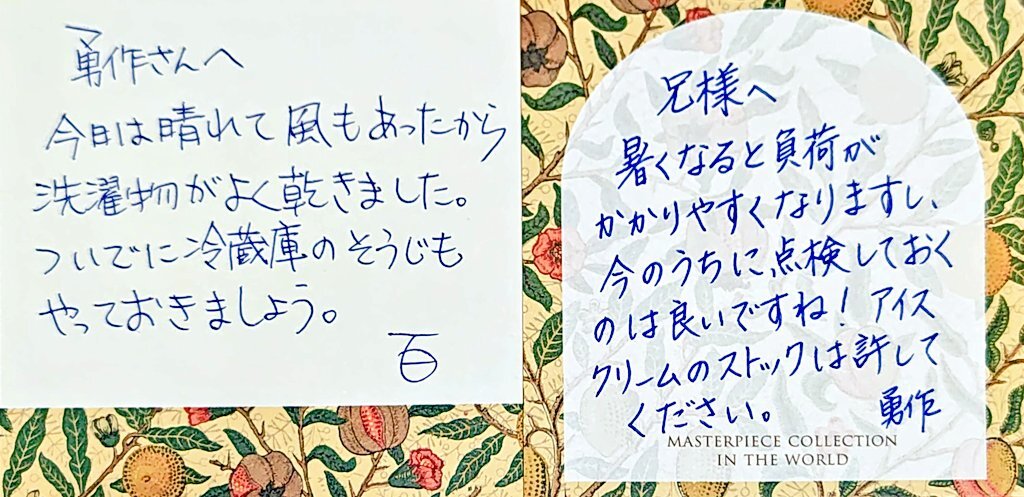 勇作さんへ
今日は晴れて風もあったから
洗濯物がよく乾きました。
ついでに冷蔵庫のそうじも
やっておきましょう。
百
兄様へ
暑くなると負荷が
かかりやすくなりますし、
今のうちに点検しておく
のは良いですね!アイス
クリームのストックは許して
ください。 勇作
MASTERPIECE COLLECTION
IN THE WORLD